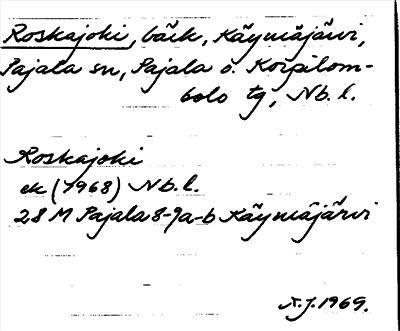 Roskajoki, bäck, Käymäjärvi,
Pajala sn, Pajala o. Korpilom-
bolo tg, Nb. l.
Roskajoki
ek (1968) Nb. l.
28 M Pajala 8-9a-b Käymäjärvi
A.J. 1969.